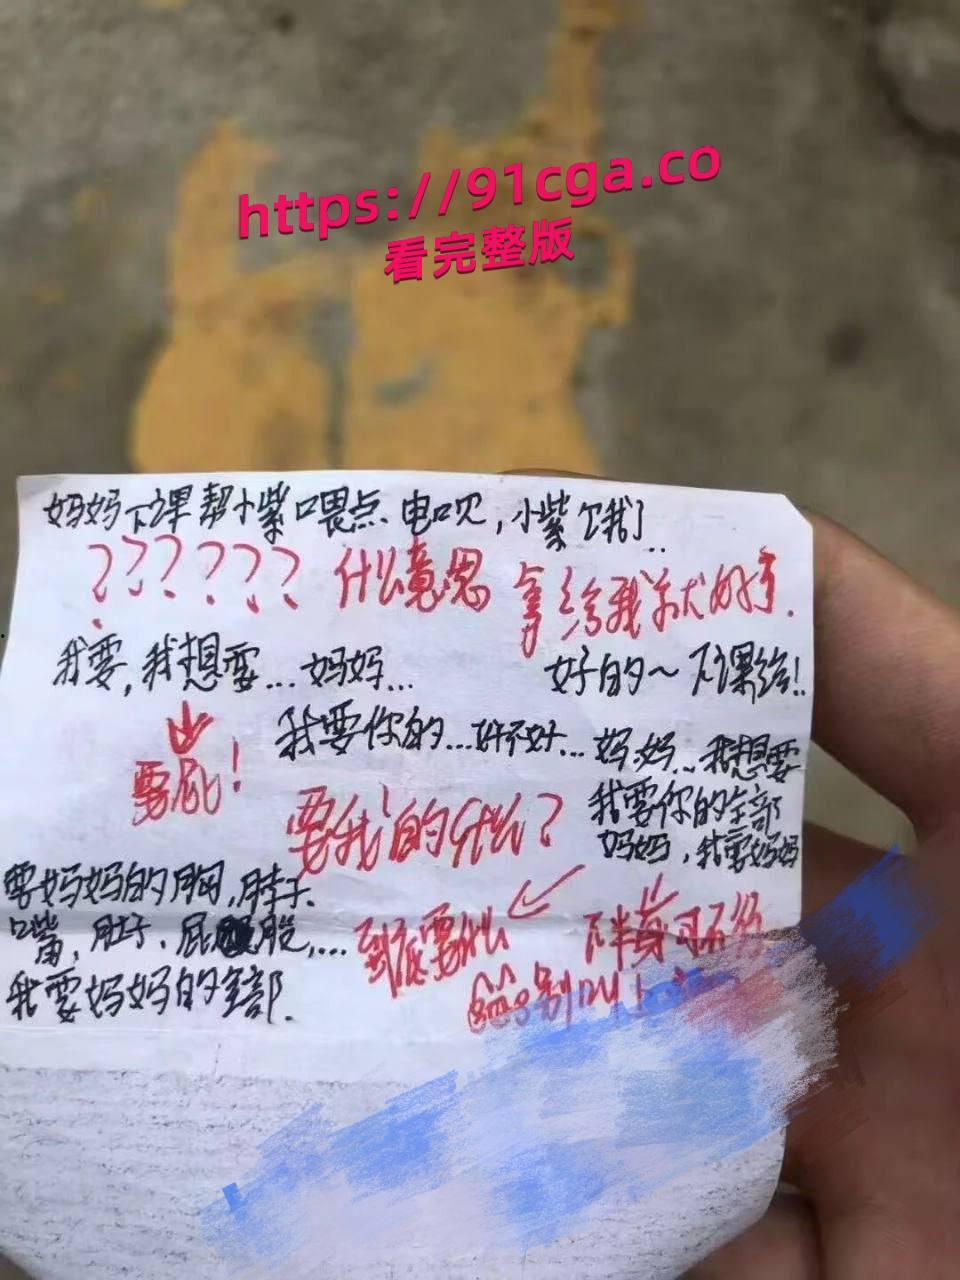 https://91cga.co
看完整版
妈妈下课帮小紫喂点电呗，小紫饿了..
??????? 什么意思 拿给我就好了.
我要,我想要...妈妈... 好的~下课给!!
要屁! 我要你的...好不好... 妈妈...我想要
要我的什么? 我要你的全部
妈妈，我要妈妈
要妈妈的胸,脖子.
嘴，肚子、屁股,...
到底要什么 下半身可不行
我要妈妈的全部.
别叫